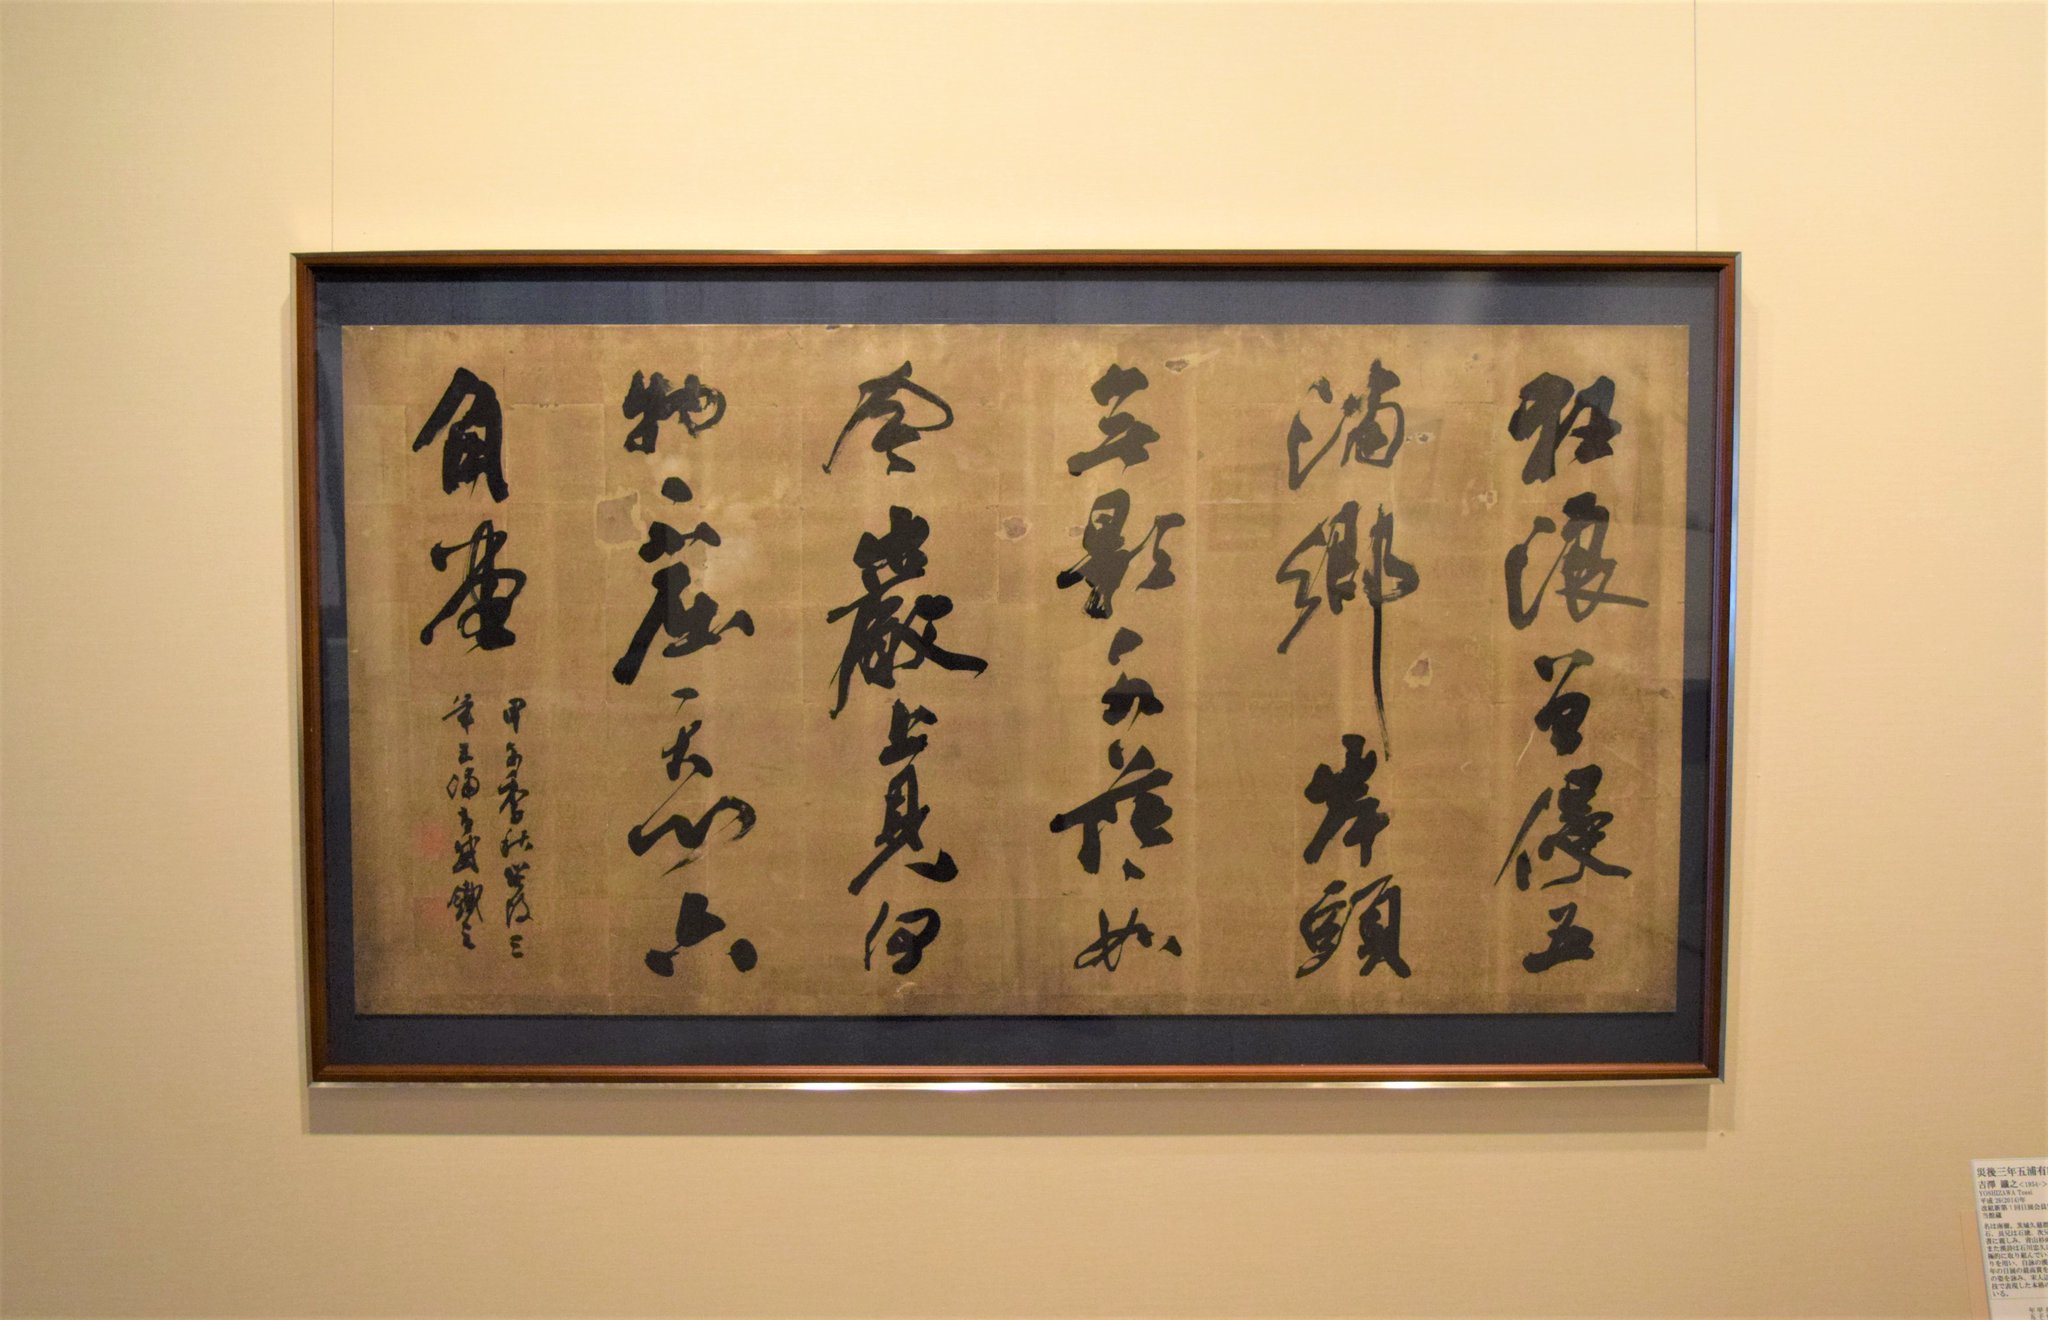 狂浪曾侵五
浦郷岸頭
無影水茫々如
今巖上見何
物不屈天心六
角堂
甲午季秋災後三
年五浦有感鐵之
災後三年五浦有
吉澤 鐵之<1934->
YOSHIZAWA
平成 26(2014)年
改組新第1回日展会員
当館蔵